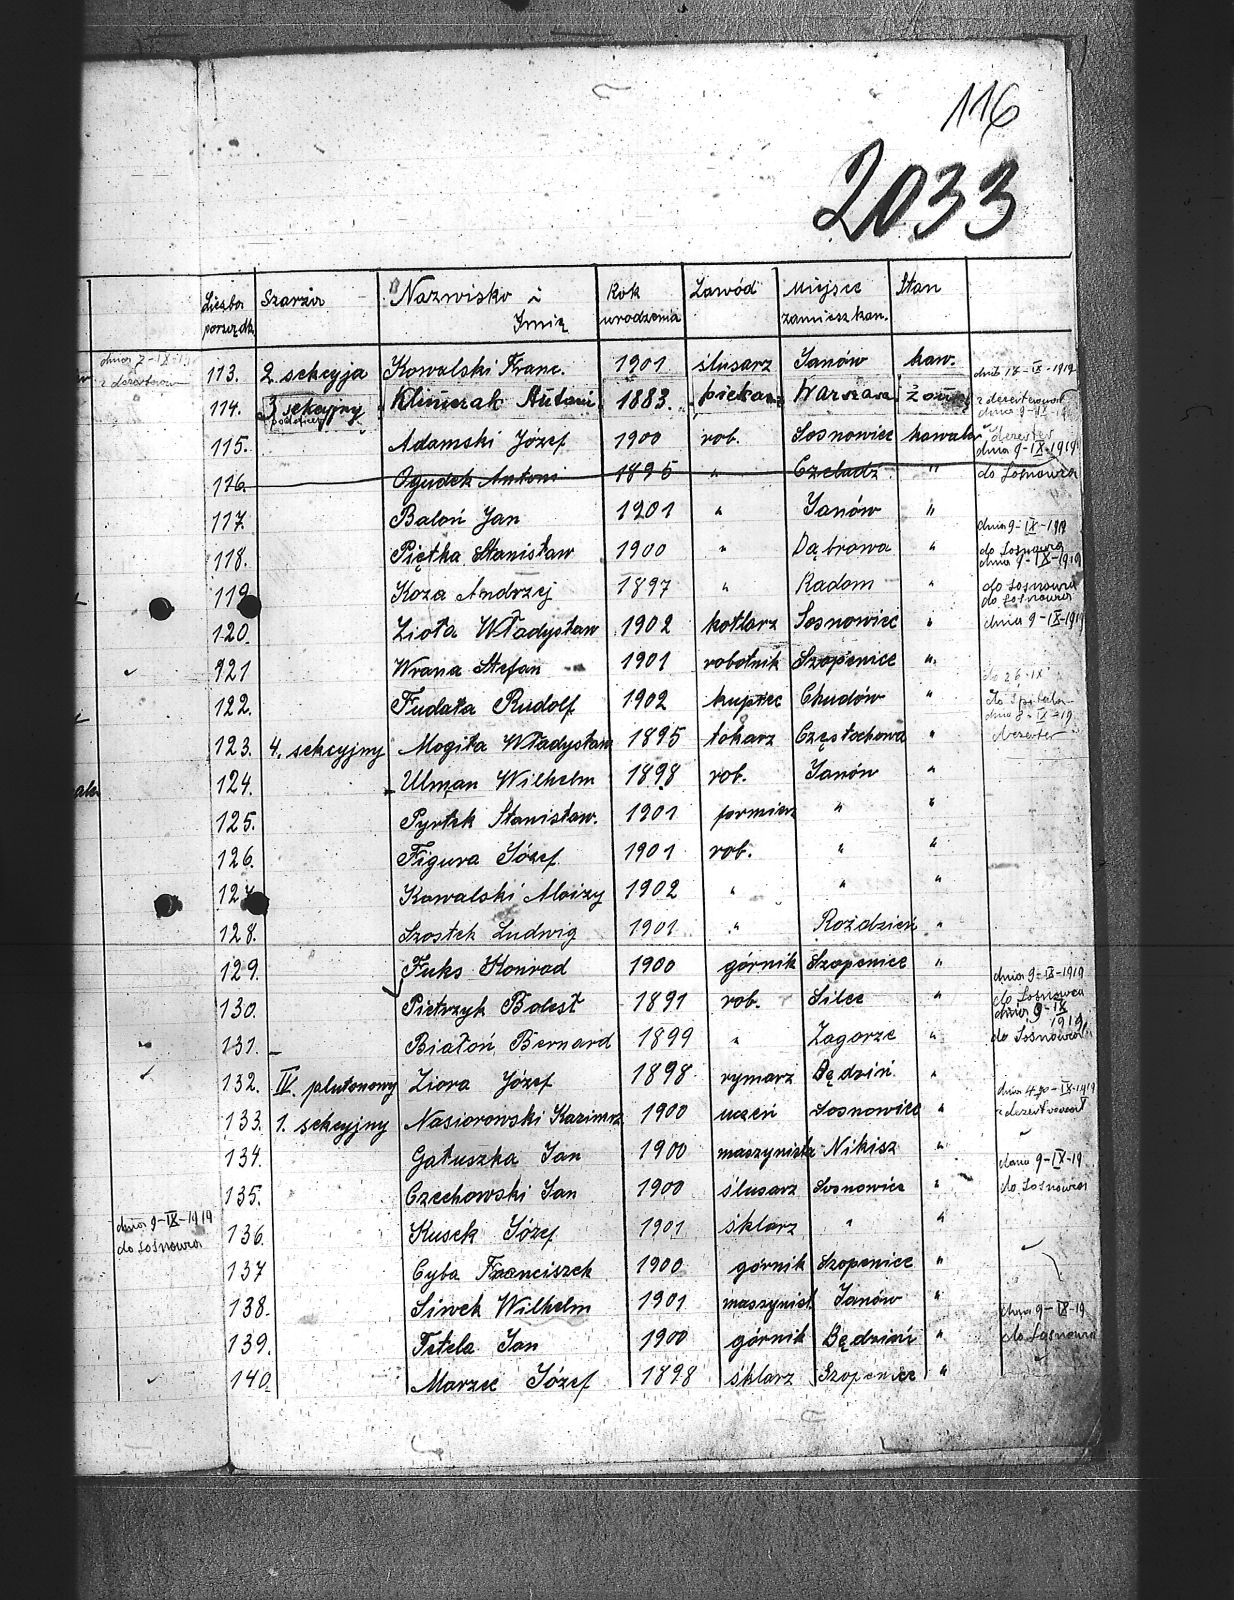 116
2033
Liczba porządk. Szarża Nazwisko i Imię Rok urodzenia Zawód Miejsce zamieszkan. Stan
dnia 7-IX-19
113. 2 sekcyja Kowalski Franc. 1901 ślusarz Janów kaw. dnia 18-IX-1919
114. 3 sekcyjny Klimczak Antoni 1883. piekarz Warszawa żonaty
115. Adamski Józef 1900 rob. Sosnowiec kawaler dnia 9-IX-1919
116. Ogudek Antoni 1895 " Czeladź " do Sosnowca
117. Baloń Jan 1901 " Janów "
118. Piętka Stanisław 1900 " Dąbrowa " dnia 9-IX-1919 do Sosnowca
119. Koza Andrzej 1897 " Radom " dnia 9-IX-1919 do Sosnowca
120. Zioła Władysław 1902 kotlarz Sosnowiec " do Sosnowca dnia 9-IX-1919
121 Wrana Stefan 1901 robotnik Szopenice "
122. Fudała Rudolf 1902 kupiec Chudów "
123. 4. sekcyjny Mogiła Władysław 1895 tokarz Częstochowa " dnia 8-IX-19 dezerter
124. Ulman Wilhelm 1898 rob. Janów "
125. Pyrtek Stanisław. 1901 formierz " "
126. Figura Józef 1901 rob. " "
127. Kowalski Aloizy 1902 " " "
128. Szostek Ludwig 1901 " Roździeń "
129. Fuks Konrad 1900 górnik Szopenice "
130. Pietrzyk Bolesł 1891 rob. Silec " dnia 9-IX-1919 do Sosnowca
131. Białoń Bernard 1899 " Zagorze " dnia 9-IX 1919 do Sosnowca
132. IV. plutonowy Ziora Józef 1898 rymarz Będziń "
133. 1. sekcyjny Nasiorowski Kazimrz 1900 uczeń Sosnowiec "
134. Gałuszka Jan 1900 maszynista Nikisz "
135. Czechowski Jan 1900 ślusarz Sosnowice " dnia 9-IX-19 do Sosnowca
dnia 9-IX-1919
136. Kusek Józef 1901 śklarz " "
do Sosnowca
137 Cyba Franciszek 1900 górnik Szopenice "
138. Siwek Wilhelm 1901 maszynist Janów "
139. Tetela Jan 1900 górnik Będziń " dnia 9-IX-19 do Sosnowca
140. Marzec Józef 1898 śklarz Szopenice "